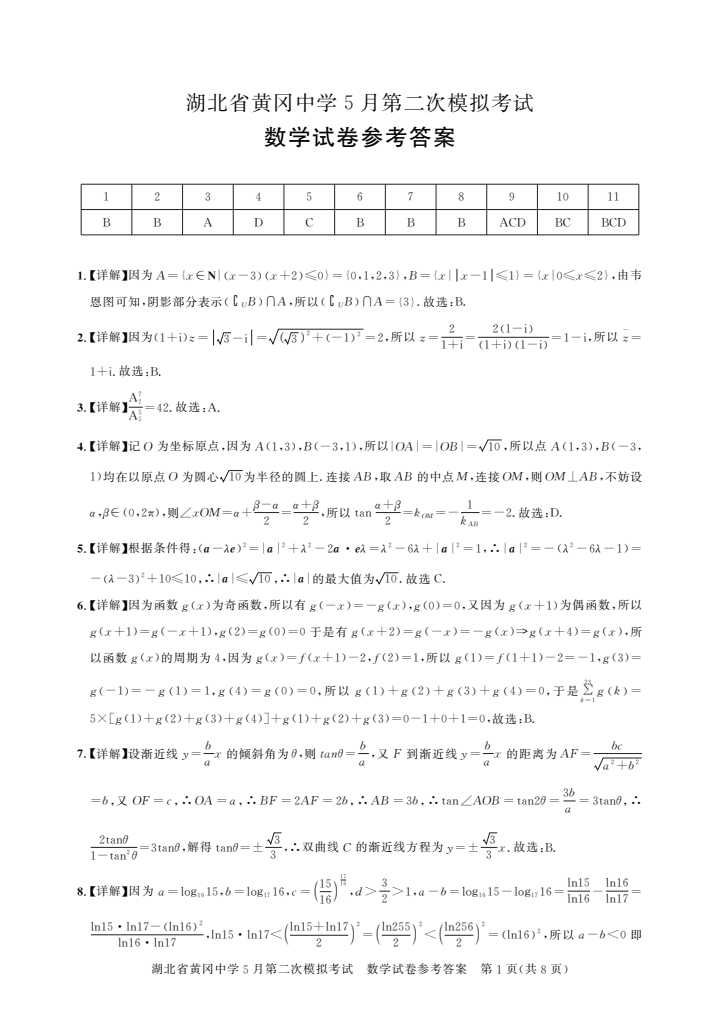 湖北省黄冈中学 5 月第二次模拟考试
数学试卷参考答案
1 2 3 4 5 6 7 8 9 10 11
B B A D C B B B ACD BC BCD
1.【详解】因为 A={x∈N|(x-3)(x+2)≤0}={0,1,2,3},B={x||x-1|≤1}={x|0≤x≤2},由韦
恩图可知,阴影部分表示(∁_U B)∩A,所以(∁_U B)∩A={3}.故选:B.
2.【详解】因为(1+i)z=|√3-i|=√((√3)²+(-1)²)=2,所以 z=2/(1+i)=2(1-i)/((1+i)(1-i))=1-i,所以 z̄=
1+i.故选:B.
3.【详解】=42.故选:A.
4.【详解】记 O 为坐标原点,因为 A(1,3),B(-3,1),所以|OA|=|OB|=√10,所以点 A(1,3),B(-3,
1)均在以原点 O 为圆心√10为半径的圆上.连接 AB,取 AB 的中点 M,连接 OM,则 OM⊥AB,不妨设
α,β∈(0,2π),则∠xOM=α+(β-α)/2=(α+β)/2,所以 tan (α+β)/2=k_OM=-1/k_AB=-2.故选:D.
5.【详解】根据条件得:(a-λe)²=|a|²+λ²-2a·eλ=λ²-6λ+|a|²=1,∴|a|²=-(λ²-6λ-1)=
-(λ-3)²+10≤10,∴|a|≤√10,∴|a|的最大值为√10.故选 C.
6.【详解】因为函数 g(x)为奇函数,所以有 g(-x)=-g(x),g(0)=0,又因为 g(x+1)为偶函数,所以
g(x+1)=g(-x+1),g(2)=g(0)=0 于是有 g(x+2)=g(-x)=-g(x)⇒g(x+4)=g(x),所
以函数 g(x)的周期为 4,因为 g(x)=f(x+1)-2,f(2)=1,所以 g(1)=f(1+1)-2=-1,g(3)=
g(-1)=-g(1)=1,g(4)=g(0)=0,所以 g(1)+g(2)+g(3)+g(4)=0,于是 ∑_{k=1}^{23} g(k)=
5×[g(1)+g(2)+g(3)+g(4)]+g(1)+g(2)+g(3)=0-1+0+1=0,故选:B.
7.【详解】设渐近线 y=b/a x 的倾斜角为 θ,则 tanθ=b/a,又 F 到渐近线 y=b/a x 的距离为 AF=bc/√(a²+b²)
=b,又 OF=c,∴OA=a,∴BF=2AF=2b,∴AB=3b,∴tan∠AOB=tan2θ=3b/a=3tanθ,∴
2tanθ/(1-tan²θ)=3tanθ,解得 tanθ=±√3/3,∴双曲线 C 的渐近线方程为 y=±√3/3 x.故选:B.
8.【详解】因为 a=log₁₆15,b=log₁₇16,c=(15/16)^,d>3/2>1,a-b=log₁₆15-log₁₇16=ln15/ln16-ln16/ln17=
(ln15·ln17-(ln16)²)/(ln16·ln17),ln15·ln17<((ln15+ln17)/2)²=(ln255/2)²<(ln256/2)²=(ln16)²,所以 a-b<0 即
湖北省黄冈中学 5 月第二次模拟考试 数学试卷参考答案 第 1 页(共 8 页)